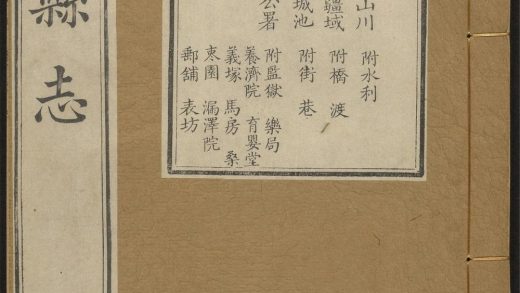 山川 附水利
疆域 附橋 渡
城池 附街 巷
公署 附監獄 藥局
養濟院 育嬰堂
義塚 馬房 桑
棗園 漏澤院
郵舖 表坊
縣志